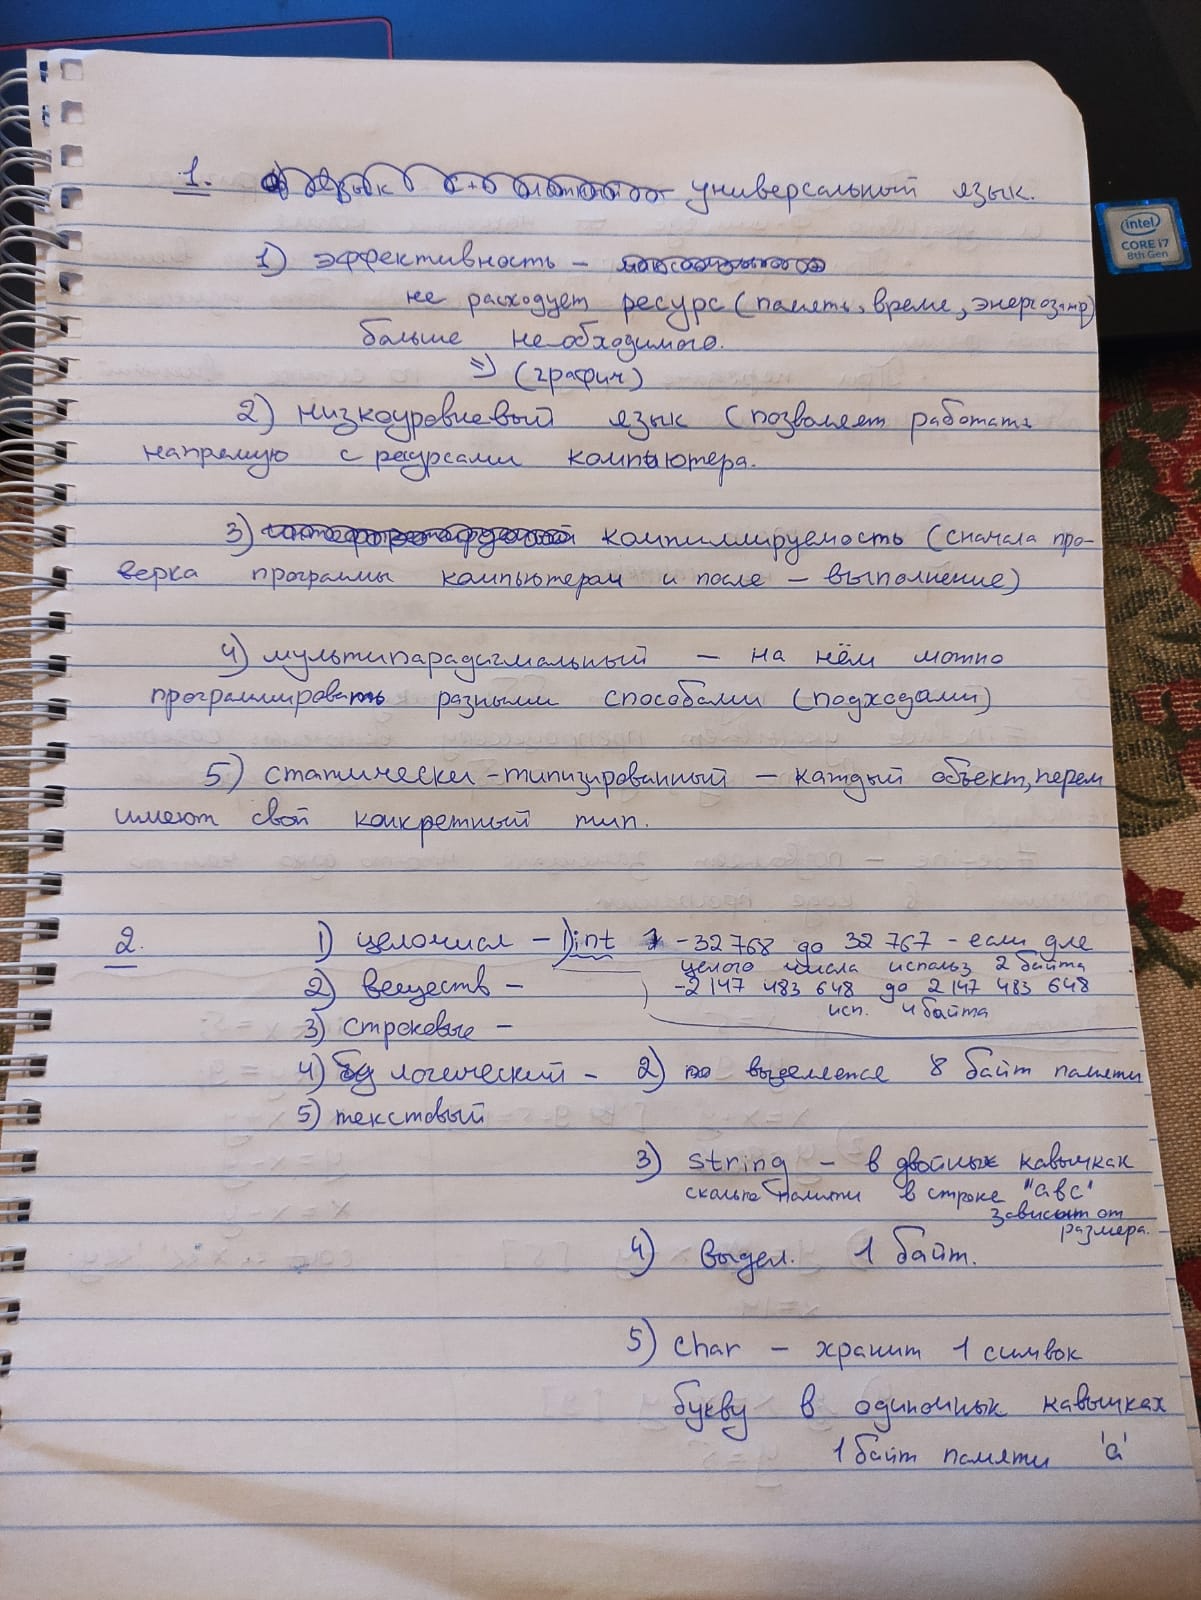 1. универсальный язык.
1) эффективность –
не расходует ресурс (память, время, энергозатр)
больше необходимого.
=> (график)
2) низкоуровневый язык (позволяет работать
напрямую с ресурсами компьютера.
3) компиллируемость (сначала про-
верка программы компьютером и после – выполнение)
4) мультипарадигмальный – на нём можно
программировать разными способами (подходами)
5) статически-типизированный – каждый объект, перем
имеют свой конкретный тип.
2. 1) целочисл – 1) int -32 768 до 32 767 - если для
целого числа использ 2 байта
2) веществ – -2 147 483 648 до 2 147 483 648
исп. 4 байта
3) строковые –
4) логический – 2) выделяется 8 байт памяти
5) текстовый
3) string – в двойных кавычках
сколько памяти в строке "abc"
зависит от
размера.
4) выдел. 1 байт.
5) char – хранит 1 символ
букву в одиночных кавычках
1 байт памяти 'a'
intel
CORE i7
8th Gen